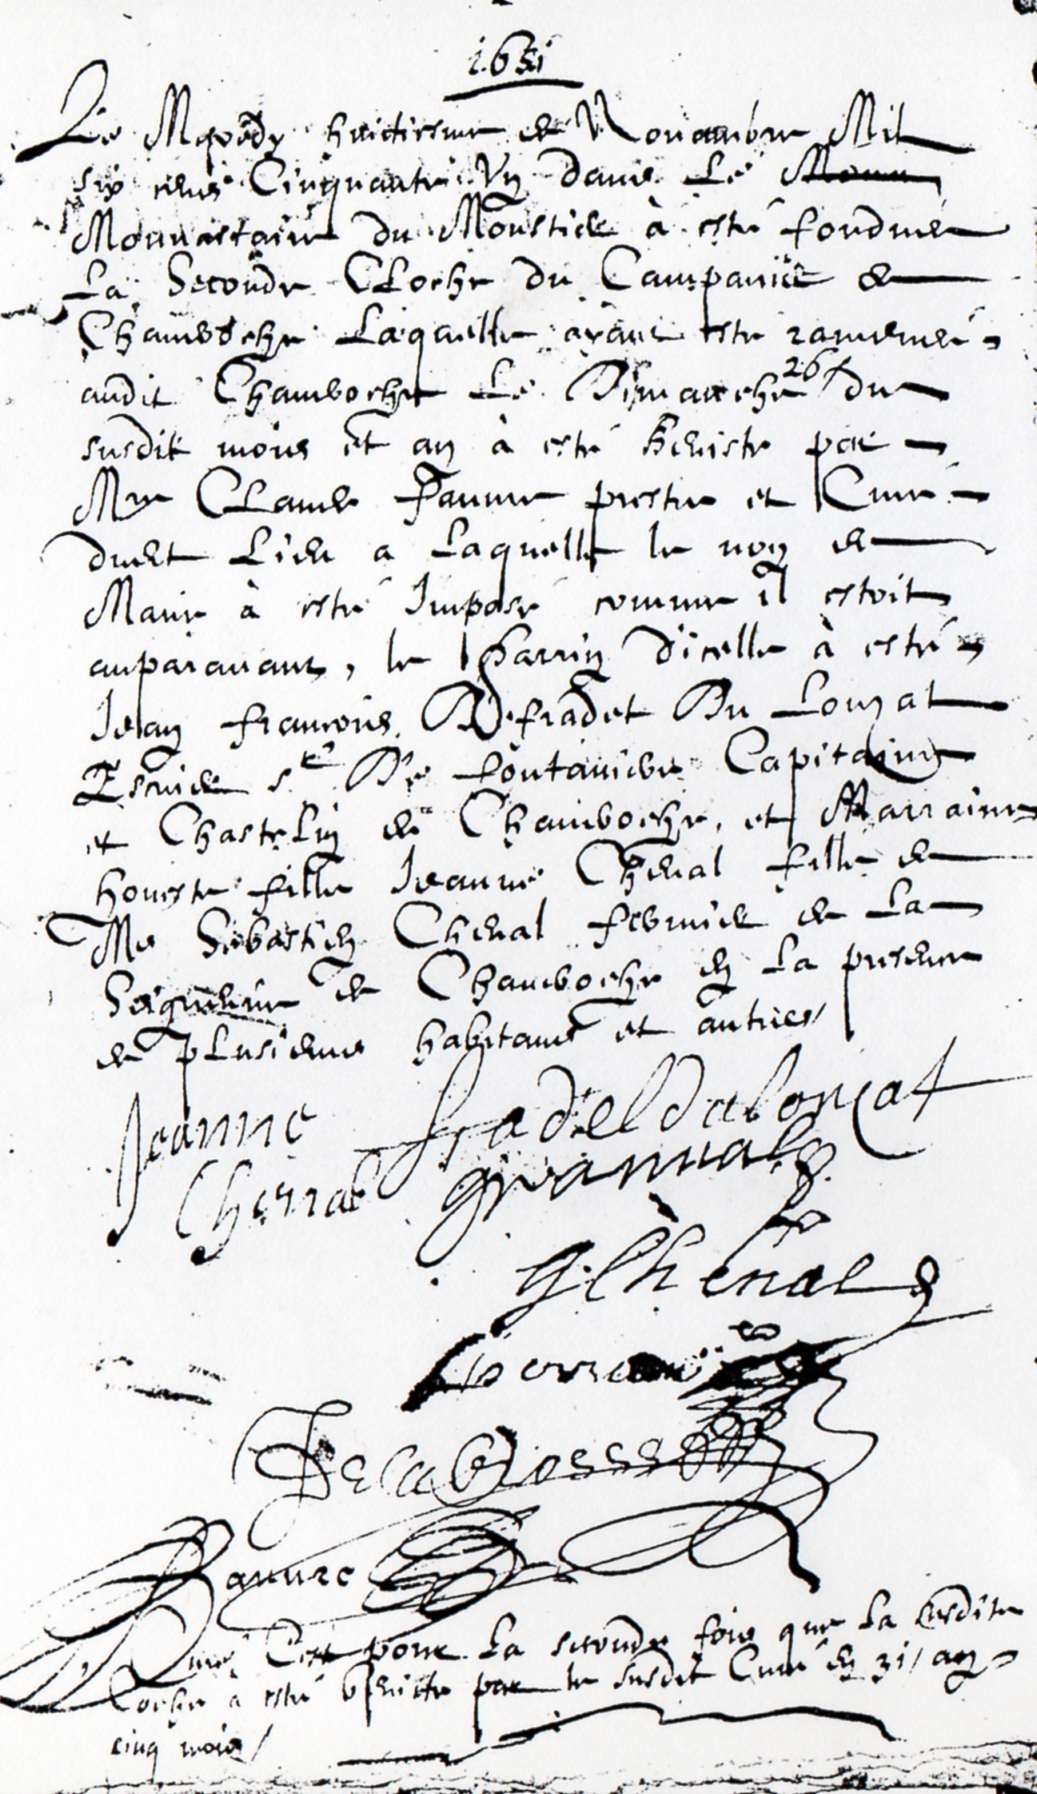 1651
Le Mercredy huictiesme de Novambre Mil
six cens Cinquante Vn dans Le
Monnastaire du Moustier à esté fondue
La Seconde CLoche du Campanier de
Chamboche Laquelle ayant esté ramenée
audit Chamboche Le Dimanche 26e du
susdit mois et an à esté beniste par
Mre CLaude Faurre prestre et Curé
dudt Lieu a Laquelle le nom de
Marie à esté Imposé comme il estoit
auparauant, le Parrin d'icelle à esté
Jean francois Defradet Du Lonzat
Escuier sr De fontanibe Capitaine
et Chastelin de Chamboche, et Marraine
honeste fille Jeanne Chenal fille de
Me Sebastien Chenal fermier de La
Seigneurie de Chamboche en La presence
de pLusieurs habitans et autres/
Jeanne fradel dulonzat
Chenal
g Chenal
Delabrosse
Faurre
Curé C'est pour La seconde fois que La susdite
Coche à esté beniste par le susdit Curé en 31/ an
cinq mois/